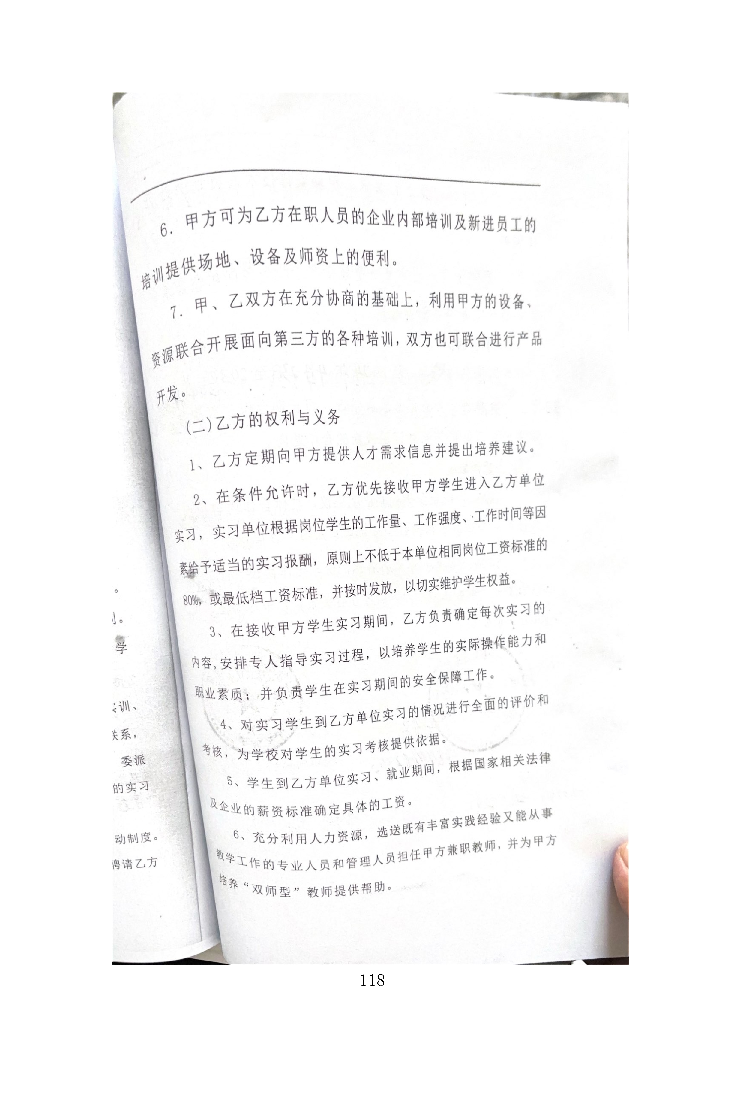 6．甲方可为乙方在职人员的企业内部培训及新进员工的
培训提供场地、设备及师资上的便利。
7．甲、乙双方在充分协商的基础上，利用甲方的设备、
资源联合开展面向第三方的各种培训，双方也可联合进行产品
开发。
(二)乙方的权利与义务
1、乙方定期向甲方提供人才需求信息并提出培养建议。
2、在条件允许时，乙方优先接收甲方学生进入乙方单位
实习，实习单位根据岗位学生的工作量、工作强度、工作时间等因
素给予适当的实习报酬，原则上不低于本单位相同岗位工资标准的
80%，或最低档工资标准，并按时发放，以切实维护学生权益。
3、在接收甲方学生实习期间，乙方负责确定每次实习的
内容，安排专人指导实习过程，以培养学生的实际操作能力和
职业素质；并负责学生在实习期间的安全保障工作。
4、对实习学生到乙方单位实习的情况进行全面的评价和
考核，为学校对学生的实习考核提供依据。
5、学生到乙方单位实习、就业期间，根据国家相关法律
及企业的薪资标准确定具体的工资。
6、充分利用人力资源，选送既有丰富实践经验又能从事
教学工作的专业人员和管理人员担任甲方兼职教师，并为甲方
培养“双师型”教师提供帮助。
。
学
训、
系，
委派
的实习
动制度。
聘请乙方
118